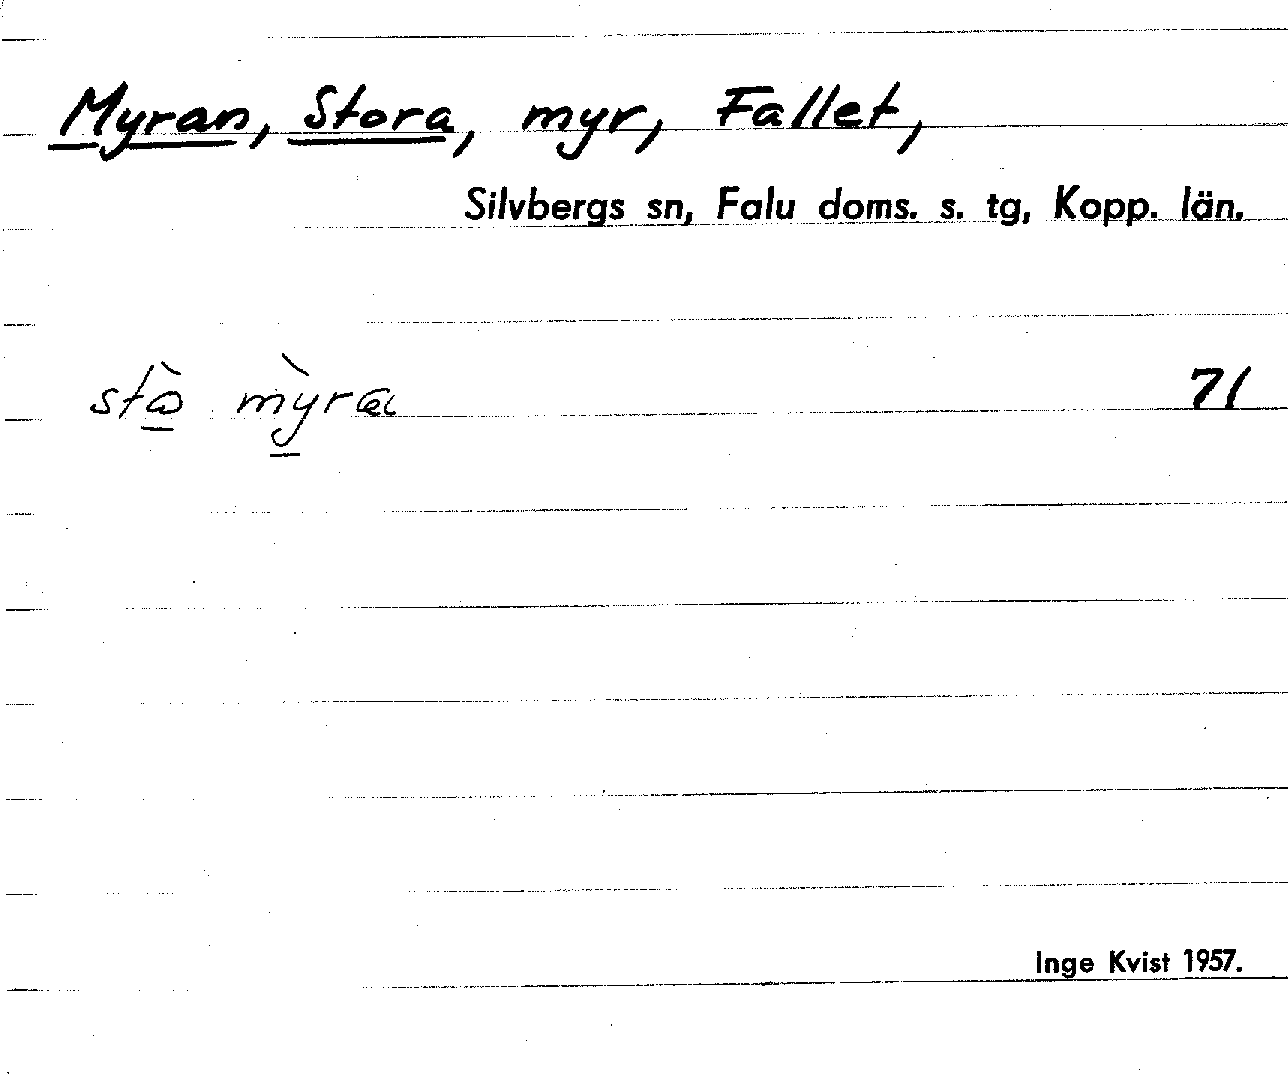 Myran, Stora, myr, Fallet,
Silvbergs sn, Falu doms. s. tg, Kopp. län.
71
Inge Kvist 1957.